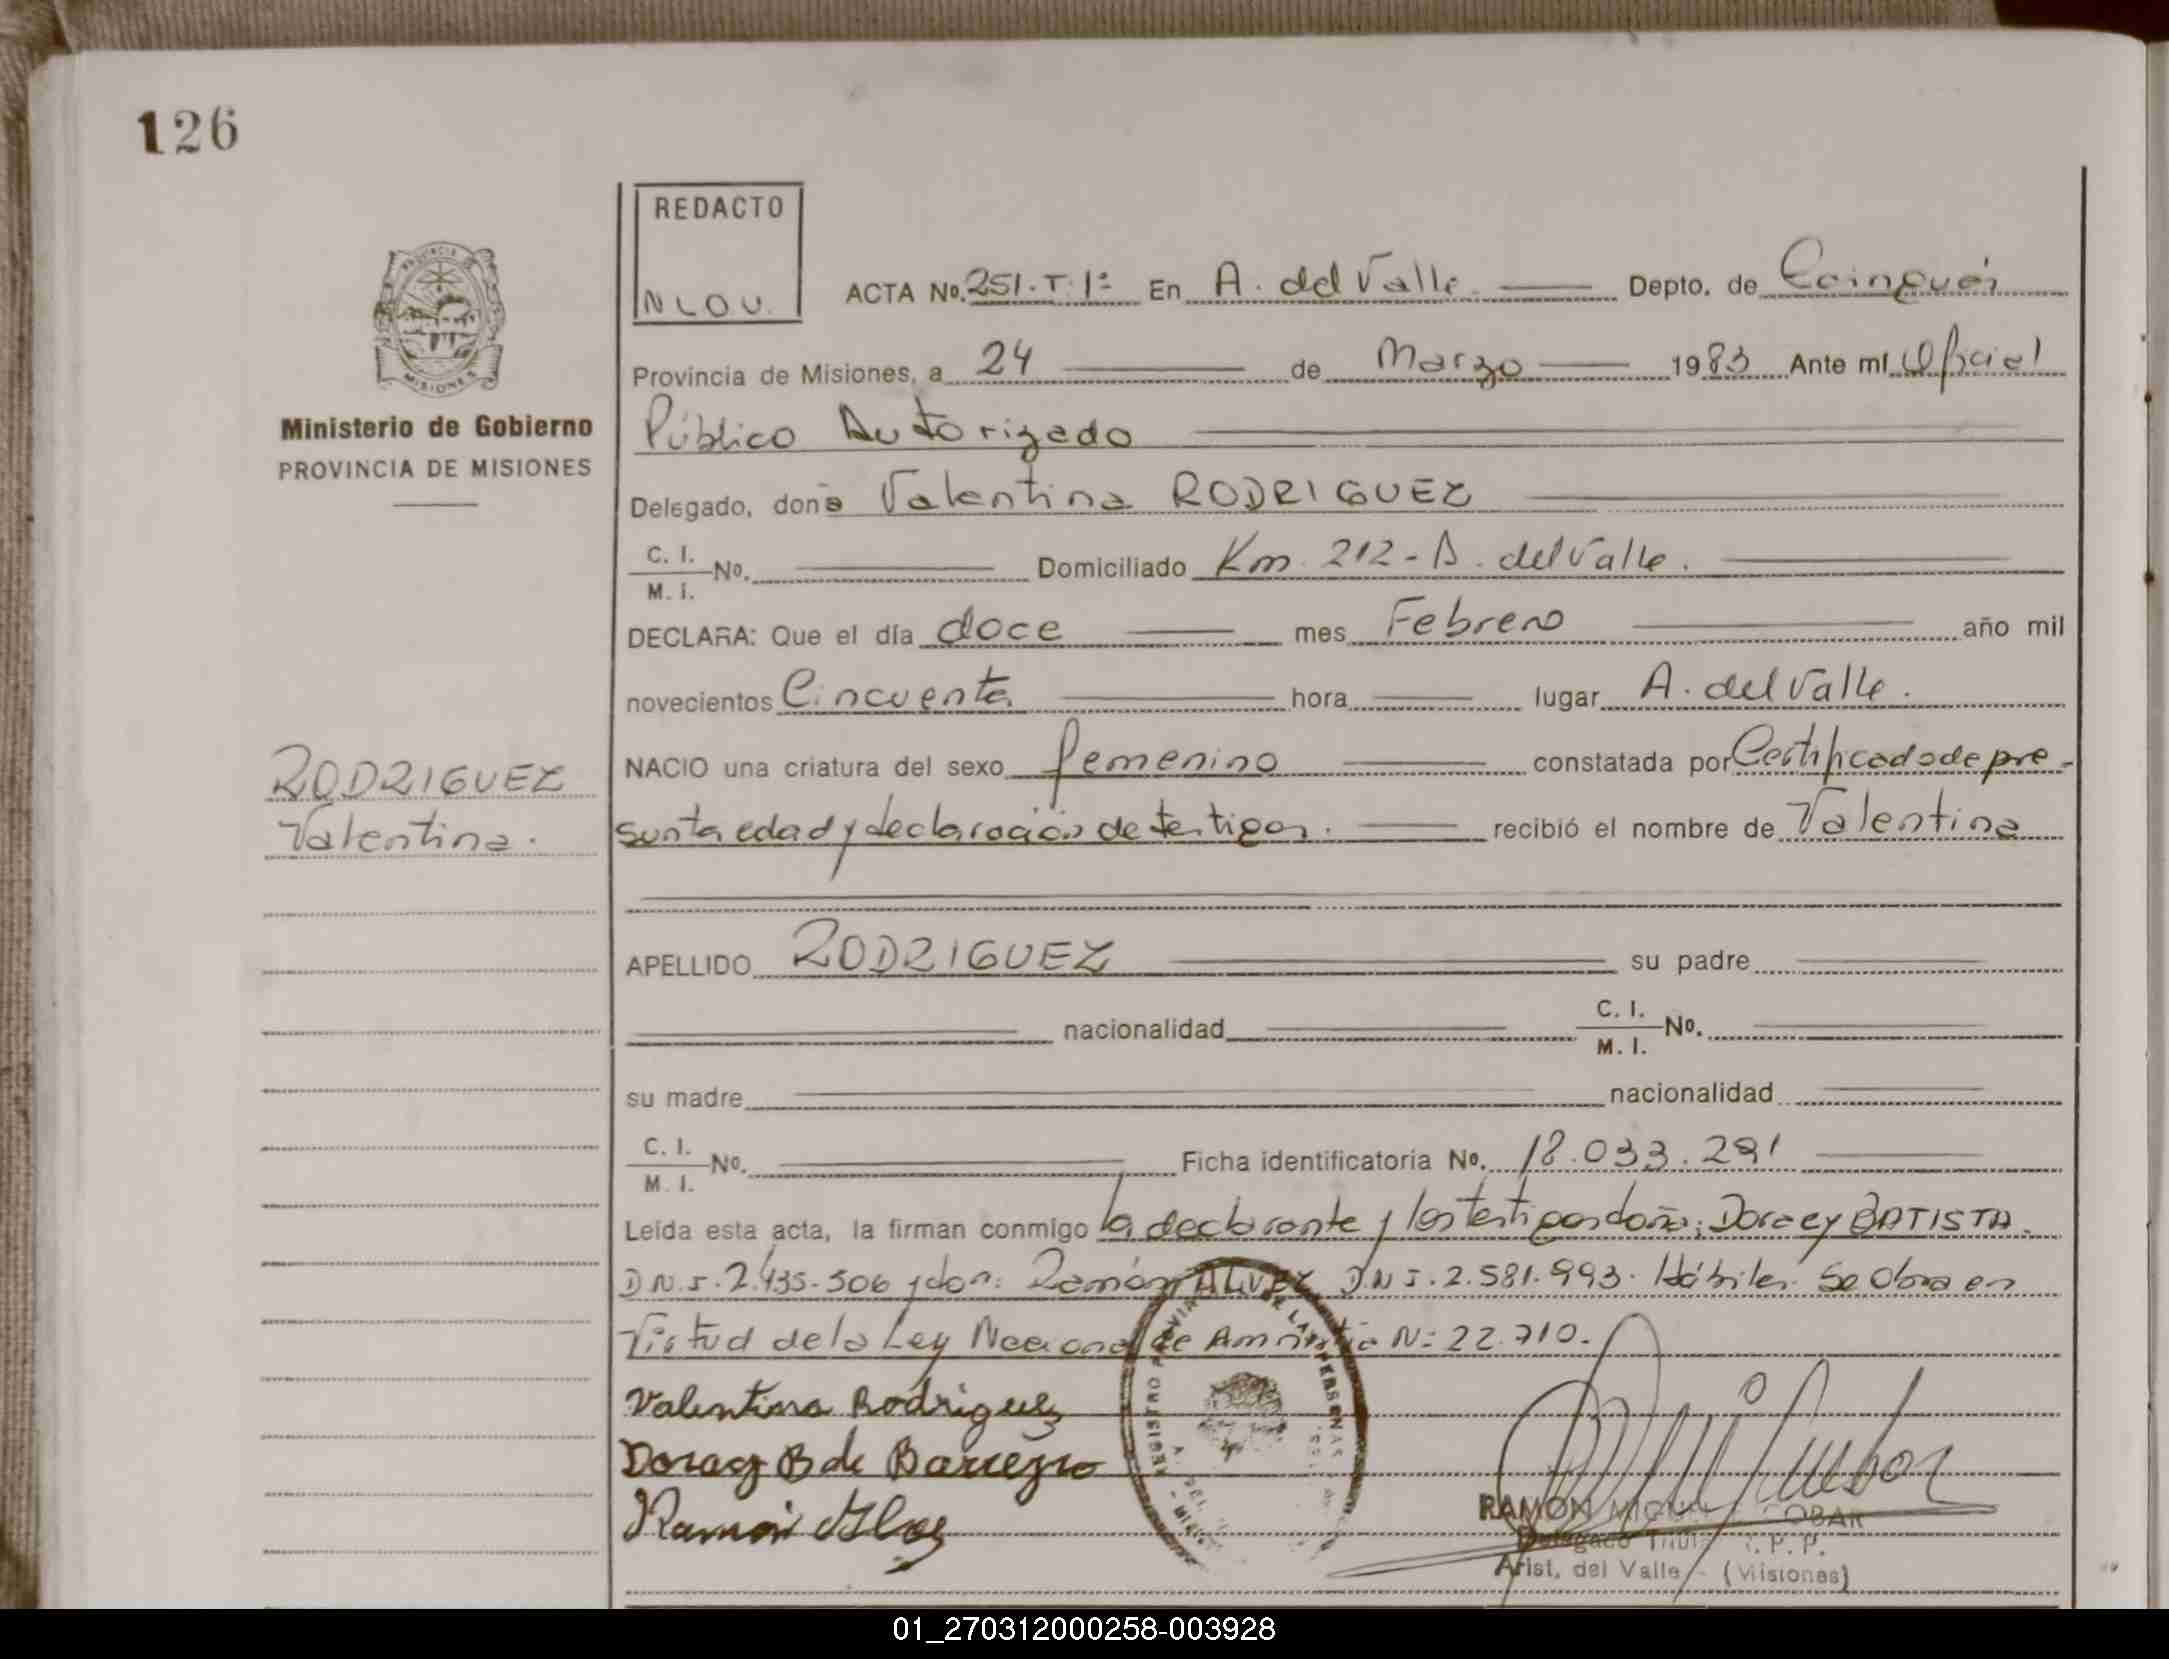 126
REDACTO
NLOU.
ACTA No. 251.T.1º En A. del Valle Depto. de Cainguás
Provincia de Misiones, a 24 de Marzo 1983 Ante mí Oficial
Público Autorizado
Ministerio de Gobierno
PROVINCIA DE MISIONES
Delegado, doña Valentina RODRIGUEZ
C. I. M. I. No. Domiciliado Km. 212 - A. del Valle.
DECLARA: Que el día doce mes Febrero año mil
novecientos Cincuenta hora lugar A. del Valle.
RODRIGUEZ
Valentina.
NACIO una criatura del sexo femenino constatada por Certificado de pre-
sunta edad y declaración de testigos. recibió el nombre de Valentina
APELLIDO RODRIGUEZ su padre
nacionalidad C. I. M. I. No.
su madre nacionalidad
C. I. M. I. No. Ficha identificatoria No. 18.033.291
Leída esta acta, la firman conmigo la declarante y los testigos doña: Doracy BATISTA.
D.N.I. 2.435.506 y don: Ramón D.N.I. 2.581.993. Hábiles. Se Obra en
Virtud de la Ley Nacional de Amnistia Nº 22.710.
Valentina Rodriguez
Doracy B de
Ramón
RAMON MIGU COBAR
Delegado Titula R. P. P.
Arist. del Valle - (Misiones)
01_270312000258-003928